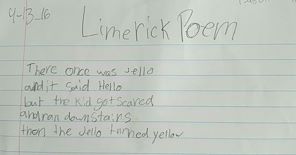 4-13-16
Limerick Poem
There once was Jello
and it said Hello
but the kid got scared
and ran downstairs
then the Jello turned yellow